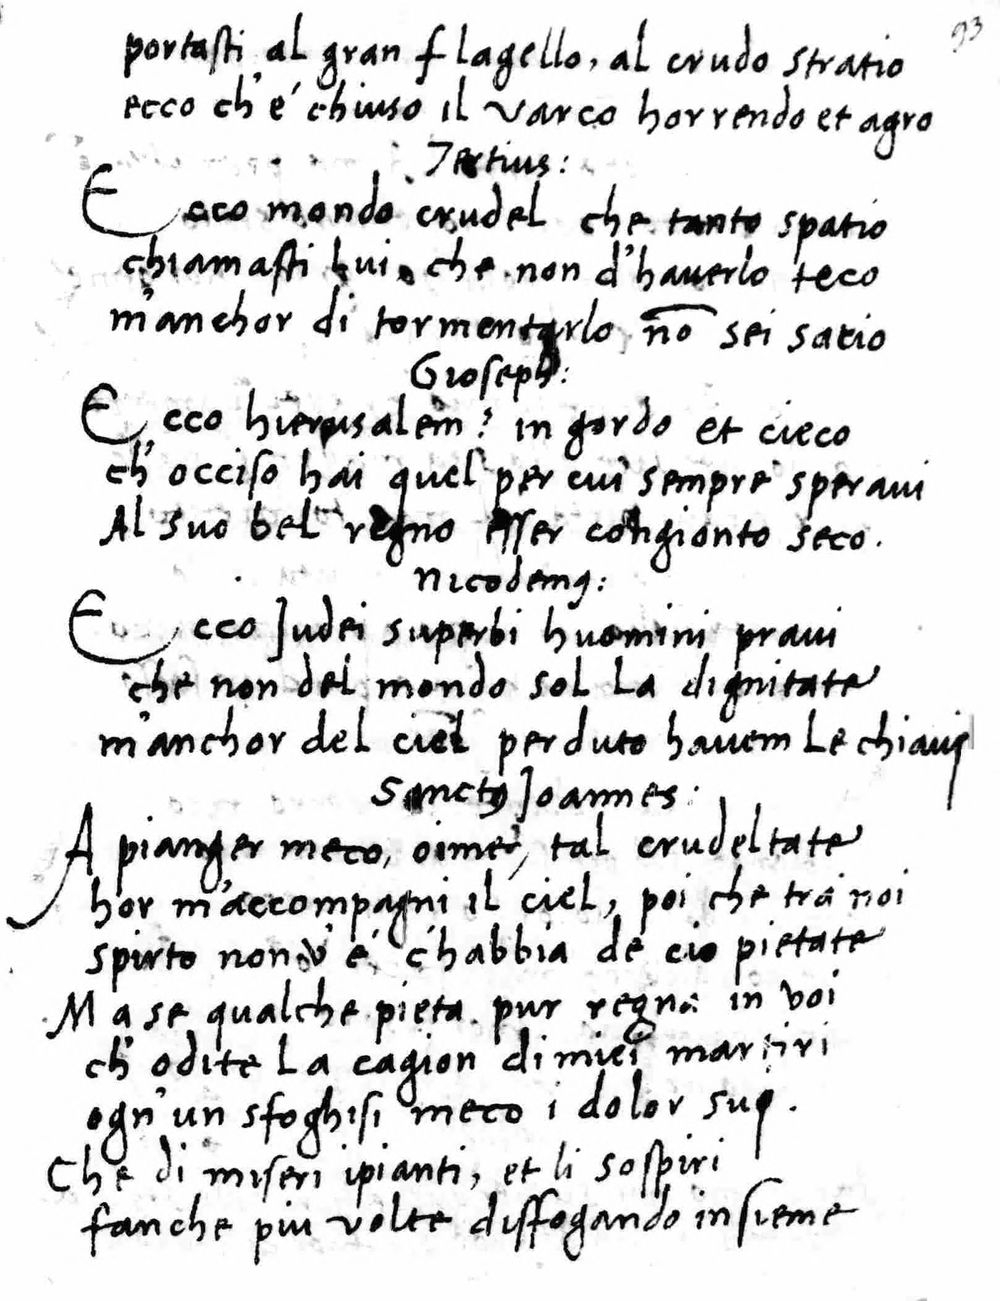 93
portasti al gran flagello, al crudo stratio
ecco ch' e' chiuso il varco horrendo et agro
Tertius:
Ecco mondo crudel che tanto spatio
chiamasti lui, che non d'haverlo teco
m'anchor di tormentarlo nō sei satio
Gioseph:
Ecco hierusalem? in gordo et cieco
ch' occiso hai quel per cui sempre speraui
Al suo bel regno esser congionto seco.
Nicodemꝰ:
Ecco Judei superbi huomini praui
che non del mondo sol la dignitate
m'anchor del ciel perduto hauem le chiaui
Sanctꝰ Joannes:
A pianger meco, oime, tal crudeltate
hor m'accompagni il ciel, poi che tra noi
spirto non v' e' c'habbia de cio pietate
Ma se qualche pieta pur regna in voi
ch' odite la cagion di miei martiri
ogn' un sfoghisi meco i dolor sui.
Che di miseri ipianti, et li sospiri
fanche piu volte disfogando insieme